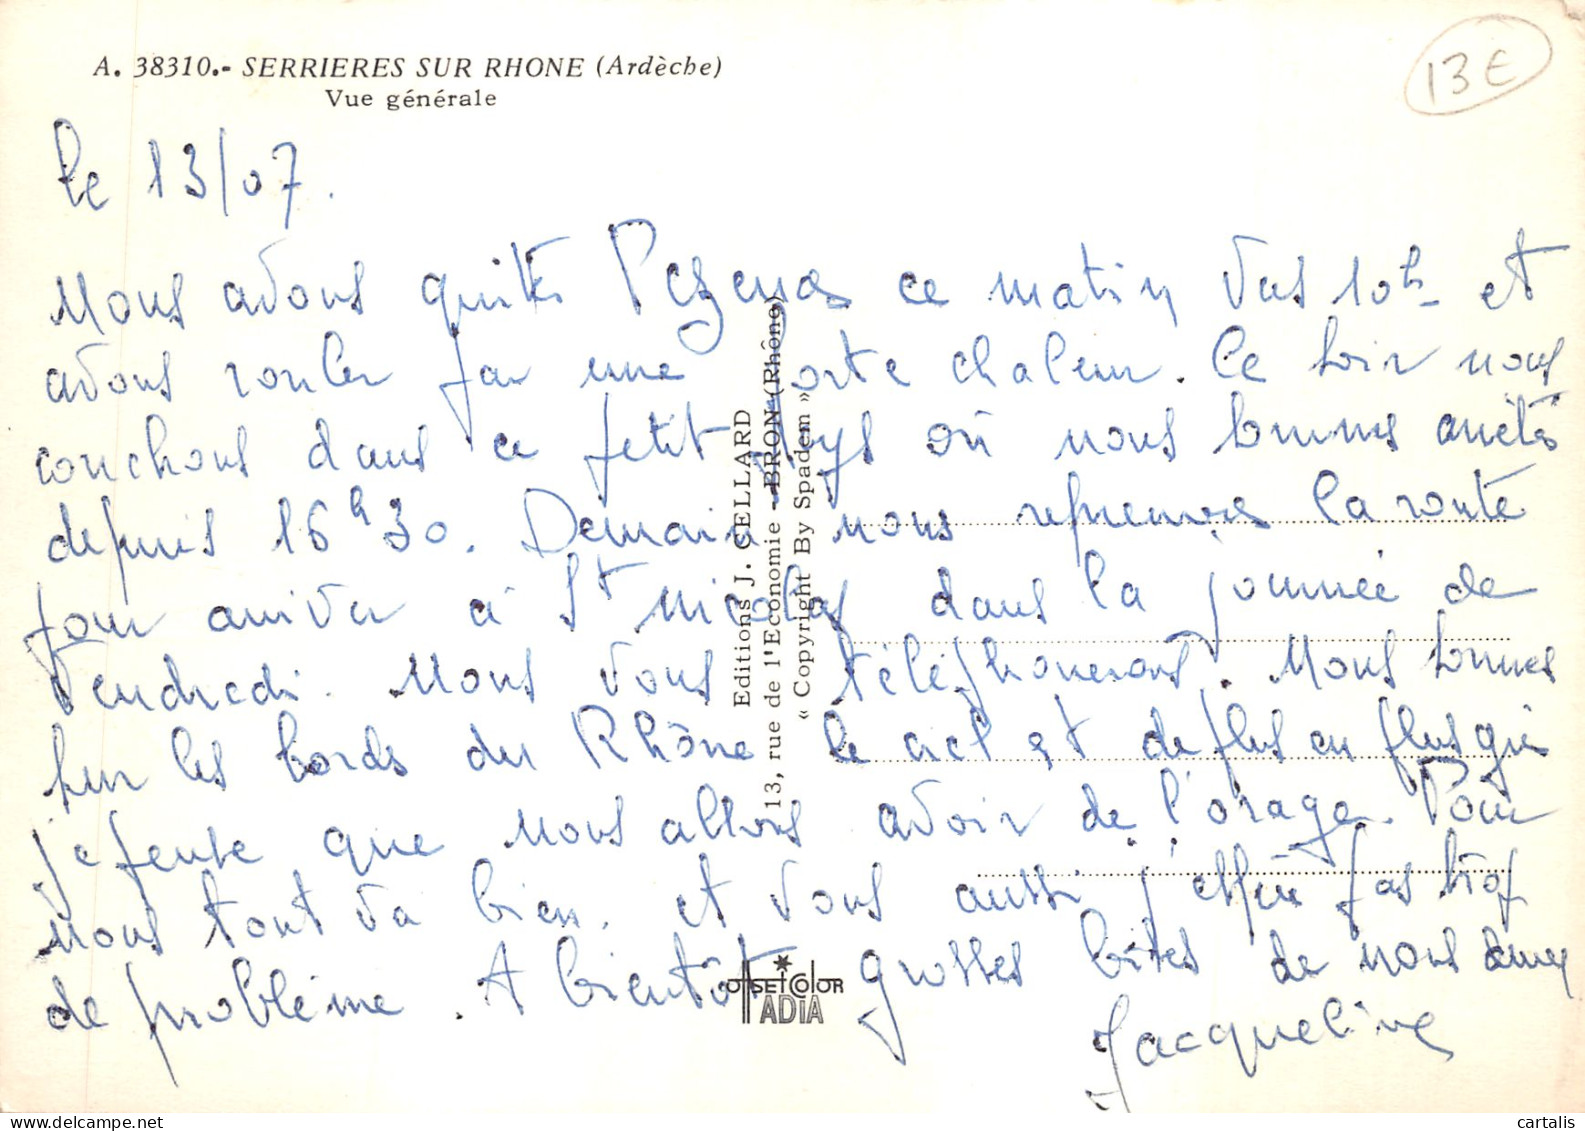 A. 38310.- SERRIERES SUR RHONE (Ardèche)
Vue générale
13 €
le 13/07.
Nous avons quitté Pezenas ce matin vers 10h et
avons rouler par une forte chaleur. Ce soir nous
couchons dans ce petit pays où nous sommes arrêtés
depuis 16h30. Demain nous reprenons la route
pour arriver à St Nicolas dans la journée de
Vendredi. Nous vous téléphonerons. Nous sommes
sur les bords du Rhône le ciel est de plus en plus gris
je pense que nous allons avoir de l'orage. Pour
nous tout va bien. et vous aussi j'espère pas trop
de problème. A bientôt grosses bises de nous deux
Jacqueline
Editions J. CELLARD
13, rue de l'Economie - BRON (Rhône)
« Copyright By Spadem »
OFFSET COLOR
ADIA
cartalis